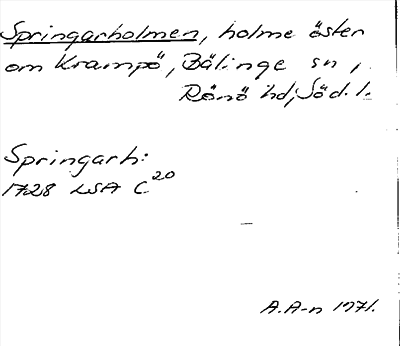 Springarholmen, holme öster
om Krampö, Bälinge sn,
Rönö hd, Söd. l.
Springarh:
1728 LSA C20
A.A-n 1971.